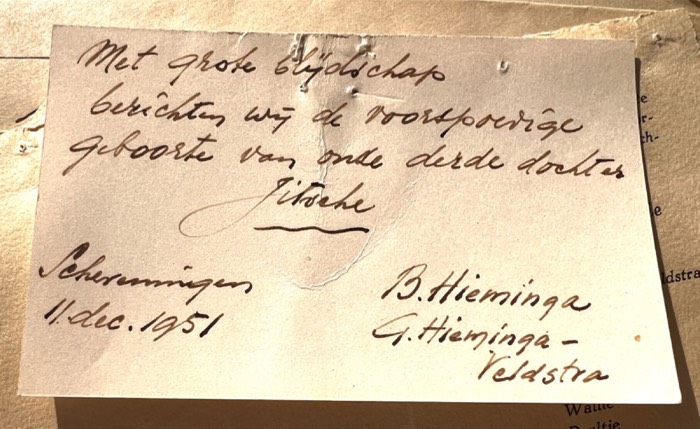 Met grote blijdschap
berichten wij de voorspoedige
geboorte van onze derde dochter
Jitsche
Scheveningen
11 dec. 1951
B. Hieminga
G. Hieminga-
Veldstra
ldstra